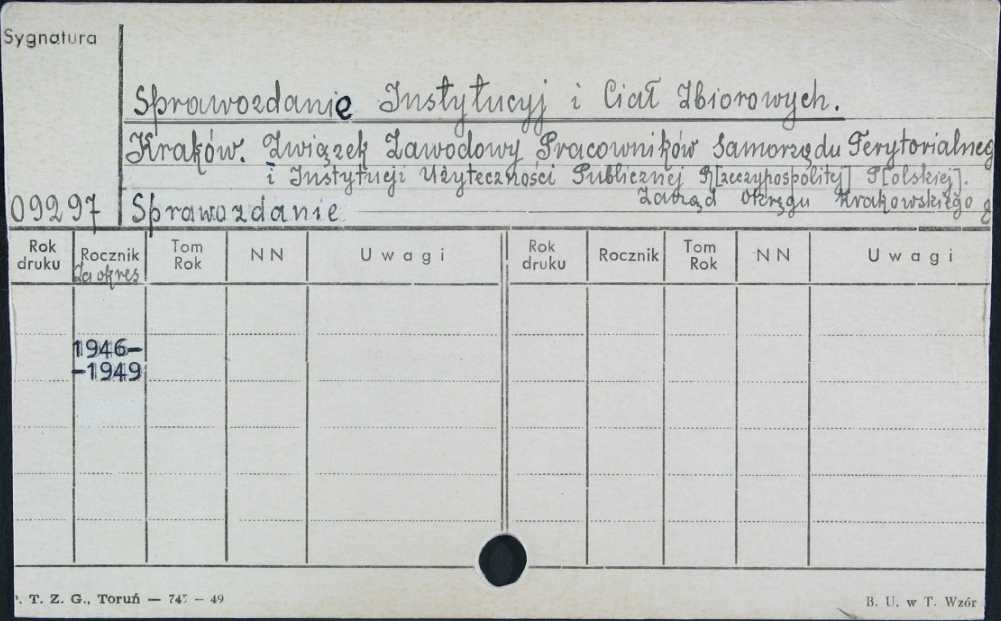 Sygnatura
Sprawozdanie Instytucyj i Ciał Zbiorowych.
Kraków. Związek Zawodowy Pracowników Samorządu Terytorialneg
i Instytucji Użyteczności Publicznej R[zeczypospolitej] P[olskiej].
Zarząd Okręgu Krakowskiego
09297 Sprawozdanie
Rok druku Rocznik Tom Rok NN Uwagi Rok druku Rocznik Tom Rok NN Uwagi
Za okres
1946–
–1949
. T. Z. G., Toruń — 747 – 49
B. U. w T. Wzór